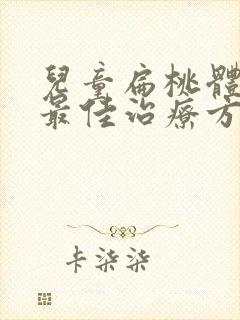 兒童扁桃體
最佳治療方
卡柒柒